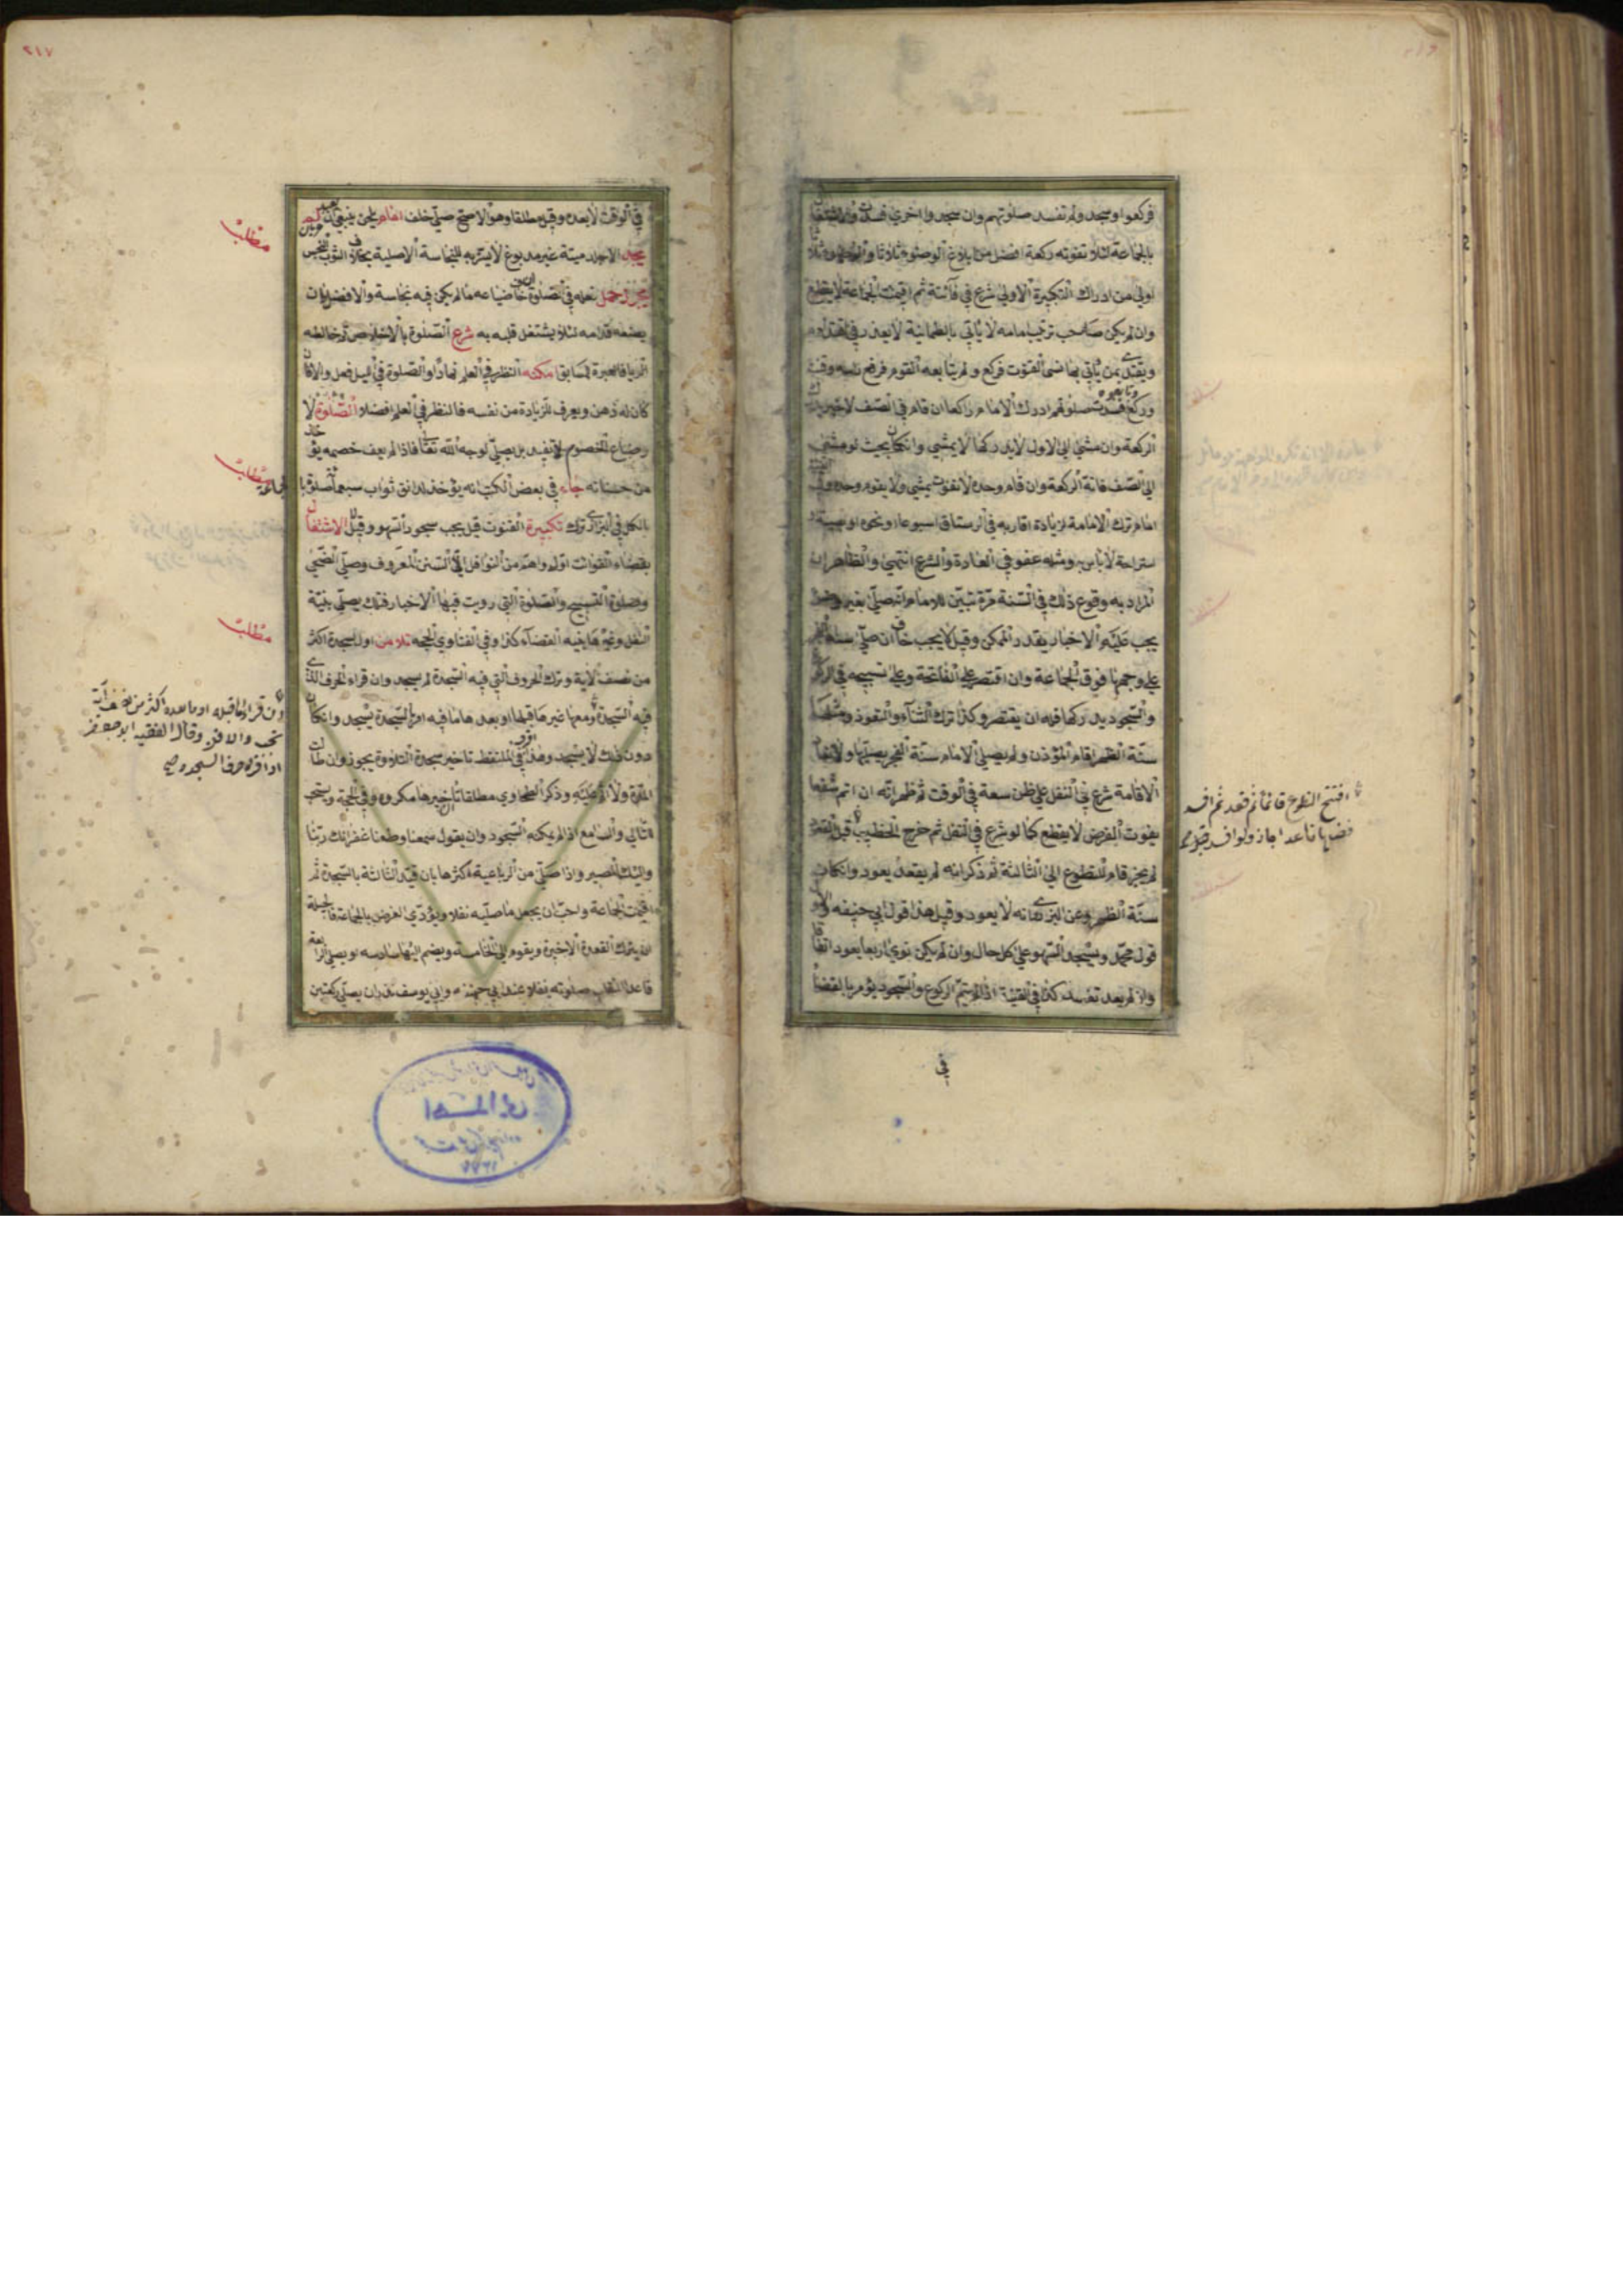 فركعوا وسجد ولم تفسد صلوتهم وان سجد واخري فسدت
بالجماعة لئلا تفوته ركعة افضل من ابلاغ الوضوء ثلاثا
اولي من ادراك التكبيرة الاولي شرع في فائتة ثم اقيمت الجماعة لا يقطع
وان لم يكن صاحب ترتيب امامه لا ياتي بالطمانية لا يعذر في اقتدائه
ويقتدي بمن ياتي بها نسي القنوت فركع ولم يتابعه القوم فرفع راسه وقنت
وركع وتابعوه فسدت صلوتهم ادرك الامام راكعا ان قام في الصف الاخير
الركعة وان مشي الي الاول لا يدركها لا يمشي وان كان بحيث لو مشي
الي الصف فاتته الركعة وان قام وحده لا تفوت يمشي ولا يقوم وحده
امام ترك الامامة لزيادة اقاربه في الرستاق اسبوعا او نحوه او لمصيبة
استراحة لا باس به ومثله عفو في العادة والشرع انتهي والظاهر ان
المراد به وقوع ذلك في السنة مرة تبين للامام انه صلي بغير وضوء
يجب عليه الاخبار بقدر الممكن وقيل لا يجب خاف ان صلي سنة الفجر
علي وجهها فوق الجماعة وان اقتصر علي الفاتحة وعلي تسبيحة في الركوع
والسجود يدركها فله ان يقتصر وكذا ترك الثناء والتعوذ
سنة الظهر اقام المؤذن ولم يصلي الامام سنة الفجر يصليها ولا تعاد
الاقامة شرع في النفل علي ظن سعة في الوقت ثم ظهر انه ان اتم شفعا
يفوت الفرض لا يقطع كما لو شرع في النفل ثم خرج الخطيب
لم يجز قام المتطوع الي الثالثة ثم ذكر انه لم يقعد يعود وان كان
سنة الظهر وعن البزدوي انه لا يعود وقيل هذا قول ابي حنيفه والاول
قول محمد ويسجد للسهو علي كل حال وان لم يكن نوي اربعا يعود اتفاقا
وان لم يعد تفسد كذا في القنية اذا لم يتم الركوع والسجود يؤمر بالقضاء
في
افتتح التطوع قائما ثم قعد ثم افسد
فقضاها قاعدا جاز ولو افسد
٢١٧
في الوقت لا بعده وقيل مطلقا وهو الاصح صلي خلف امام يلحن ينبغي ان يعيد لم
يجد الا جلد ميتة غير مدبوغ لا يستر به للنجاسة الاصلية بخلاف الثوب النجس
يجوز حمل نعله في الصلوة ان خاف ضياعه ما لم يكن فيه نجاسة والافضل ان
يضعه قدامه لئلا يشتغل قلبه به شرع الصلوة بالاخلاص ثم خالطه
الريا فالعبرة للسابق امكنه النظر في العلم نهارا والصلوة في الليل فعل والا فان
كان له ذهن ويعرف الزيادة من نفسه فالنظر في العلم افضل الصلوة لا
رضاء الخصوم لا تفيد بل يصلي لوجه الله تعالي فاذا لم يعف خصمه يؤخذ
من حسناته جاء في بعض الكتب انه يؤخذ لدانق ثواب سبعمائة صلوة بالجماعة
بالكل في البزازي ترك تكبيرة القنوت قيل يجب سجود السهو وقيل لا الاشتغال
بقضاء الفوائت اولي واهم من النوافل الا السنن المعروف وصلي الضحي
وصلوة التسبيح والصلوة التي رويت فيها الاخبار فتلك يصلي بنية
النفل وغيرها بنية القضاء كذا وفي الفتاوي الحجه تلا من اول السجدة اكثر
من نصف الاية وترك الحروف التي فيه السجدة لم يسجد وان قراء الحرف الذي
فيه السجدة ومعها غيرها قبلها او بعدها ما فيه امر السجدة يسجد وان كان
دون ذلك لا يسجد وهذا اقرب في الملتقط تاخير سجدة التلاوة يجوز وان طال
المدة ولا اثم عليه وذكر الطحاوي مطلقا ان تاخيرها مكروه وفي الحجة ويستحب
للتالي والسامع اذا لم يمكنه السجود ان يقول سمعنا واطعنا غفرانك ربنا
واليك المصير واذا صلي من الرباعية اكثرها بان قيد الثالثة بالسجدة ثم
اقيمت الجماعة واحب ان يجعل ما صليه نفلا ويؤدي الفرض بالجماعة فالحيلة
ان يترك القعدة الاخيرة ويقوم الي الخامسة ويضم اليها سادسه او يصلي الرابعة
قاعدا لتنقلب صلوته نفلا عند ابي حنيفة وابي يوسف نذر ان يصلي ركعتين
مطلب
مطلب
مطلب
وان قراء ما قبله او ما بعده اكثر من نصف آية
تجب والا فلا وقال الفقيه ابو جعفر
اذا قراء حرف السجدة